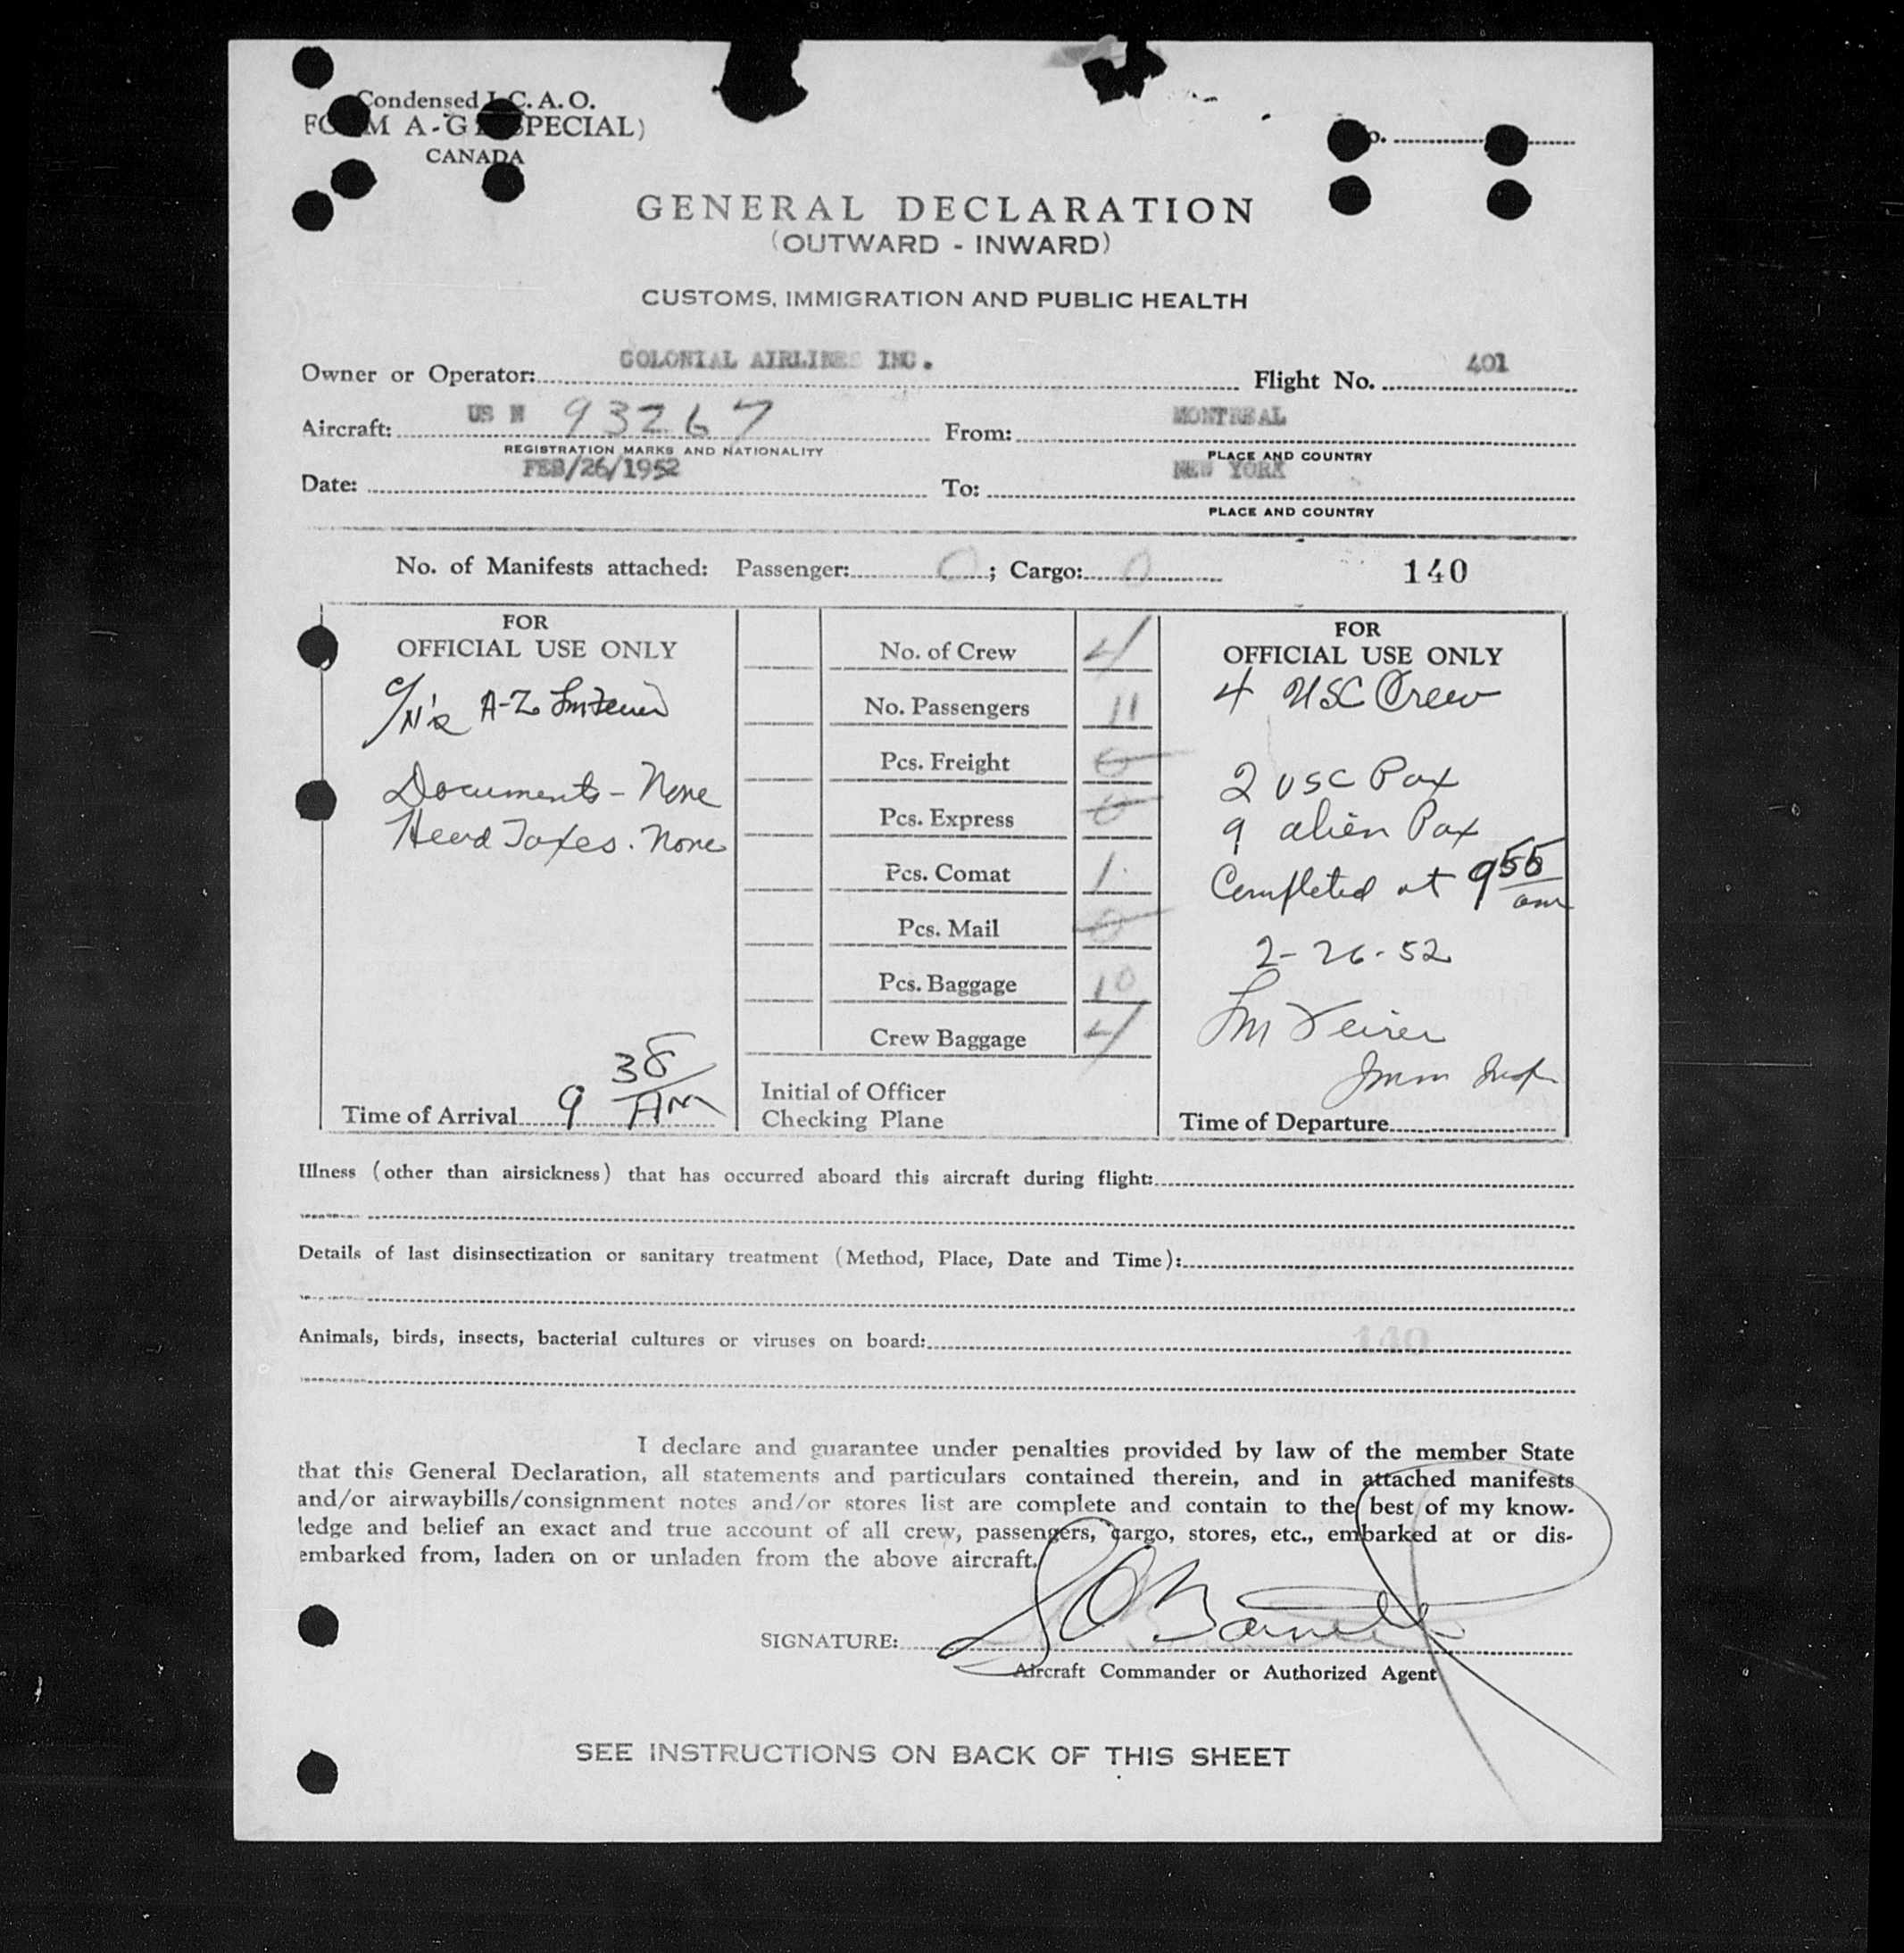 Condensed I.C.A.O.
FORM A-G (SPECIAL)
CANADA
No.
GENERAL DECLARATION
(OUTWARD - INWARD)
CUSTOMS, IMMIGRATION AND PUBLIC HEALTH
Owner or Operator: COLONIAL AIRLINES INC. Flight No. 401
Aircraft: US N 93267 From: MONTREAL
REGISTRATION MARKS AND NATIONALITY PLACE AND COUNTRY
Date: FEB/26/1952 To: NEW YORK
PLACE AND COUNTRY
No. of Manifests attached: Passenger: 0; Cargo: 0 140
FOR
OFFICIAL USE ONLY
A-Z
Documents - None
Head Taxes. None
Time of Arrival 9 38 AM
No. of Crew 4
No. Passengers 11
Pcs. Freight 0
Pcs. Express 0
Pcs. Comat 1
Pcs. Mail 0
Pcs. Baggage 10
Crew Baggage 4
Initial of Officer
Checking Plane
FOR
OFFICIAL USE ONLY
4 USC Crew
2 USC Pax
9 alien Pax
Completed at 9 55 am
2-26-52
Imm Insp
Time of Departure
Illness (other than airsickness) that has occurred aboard this aircraft during flight:
Details of last disinsectization or sanitary treatment (Method, Place, Date and Time):
Animals, birds, insects, bacterial cultures or viruses on board:
I declare and guarantee under penalties provided by law of the member State
that this General Declaration, all statements and particulars contained therein, and in attached manifests
and/or airwaybills/consignment notes and/or stores list are complete and contain to the best of my know-
ledge and belief an exact and true account of all crew, passengers, cargo, stores, etc., embarked at or dis-
embarked from, laden on or unladen from the above aircraft.
SIGNATURE:
Aircraft Commander or Authorized Agent
SEE INSTRUCTIONS ON BACK OF THIS SHEET